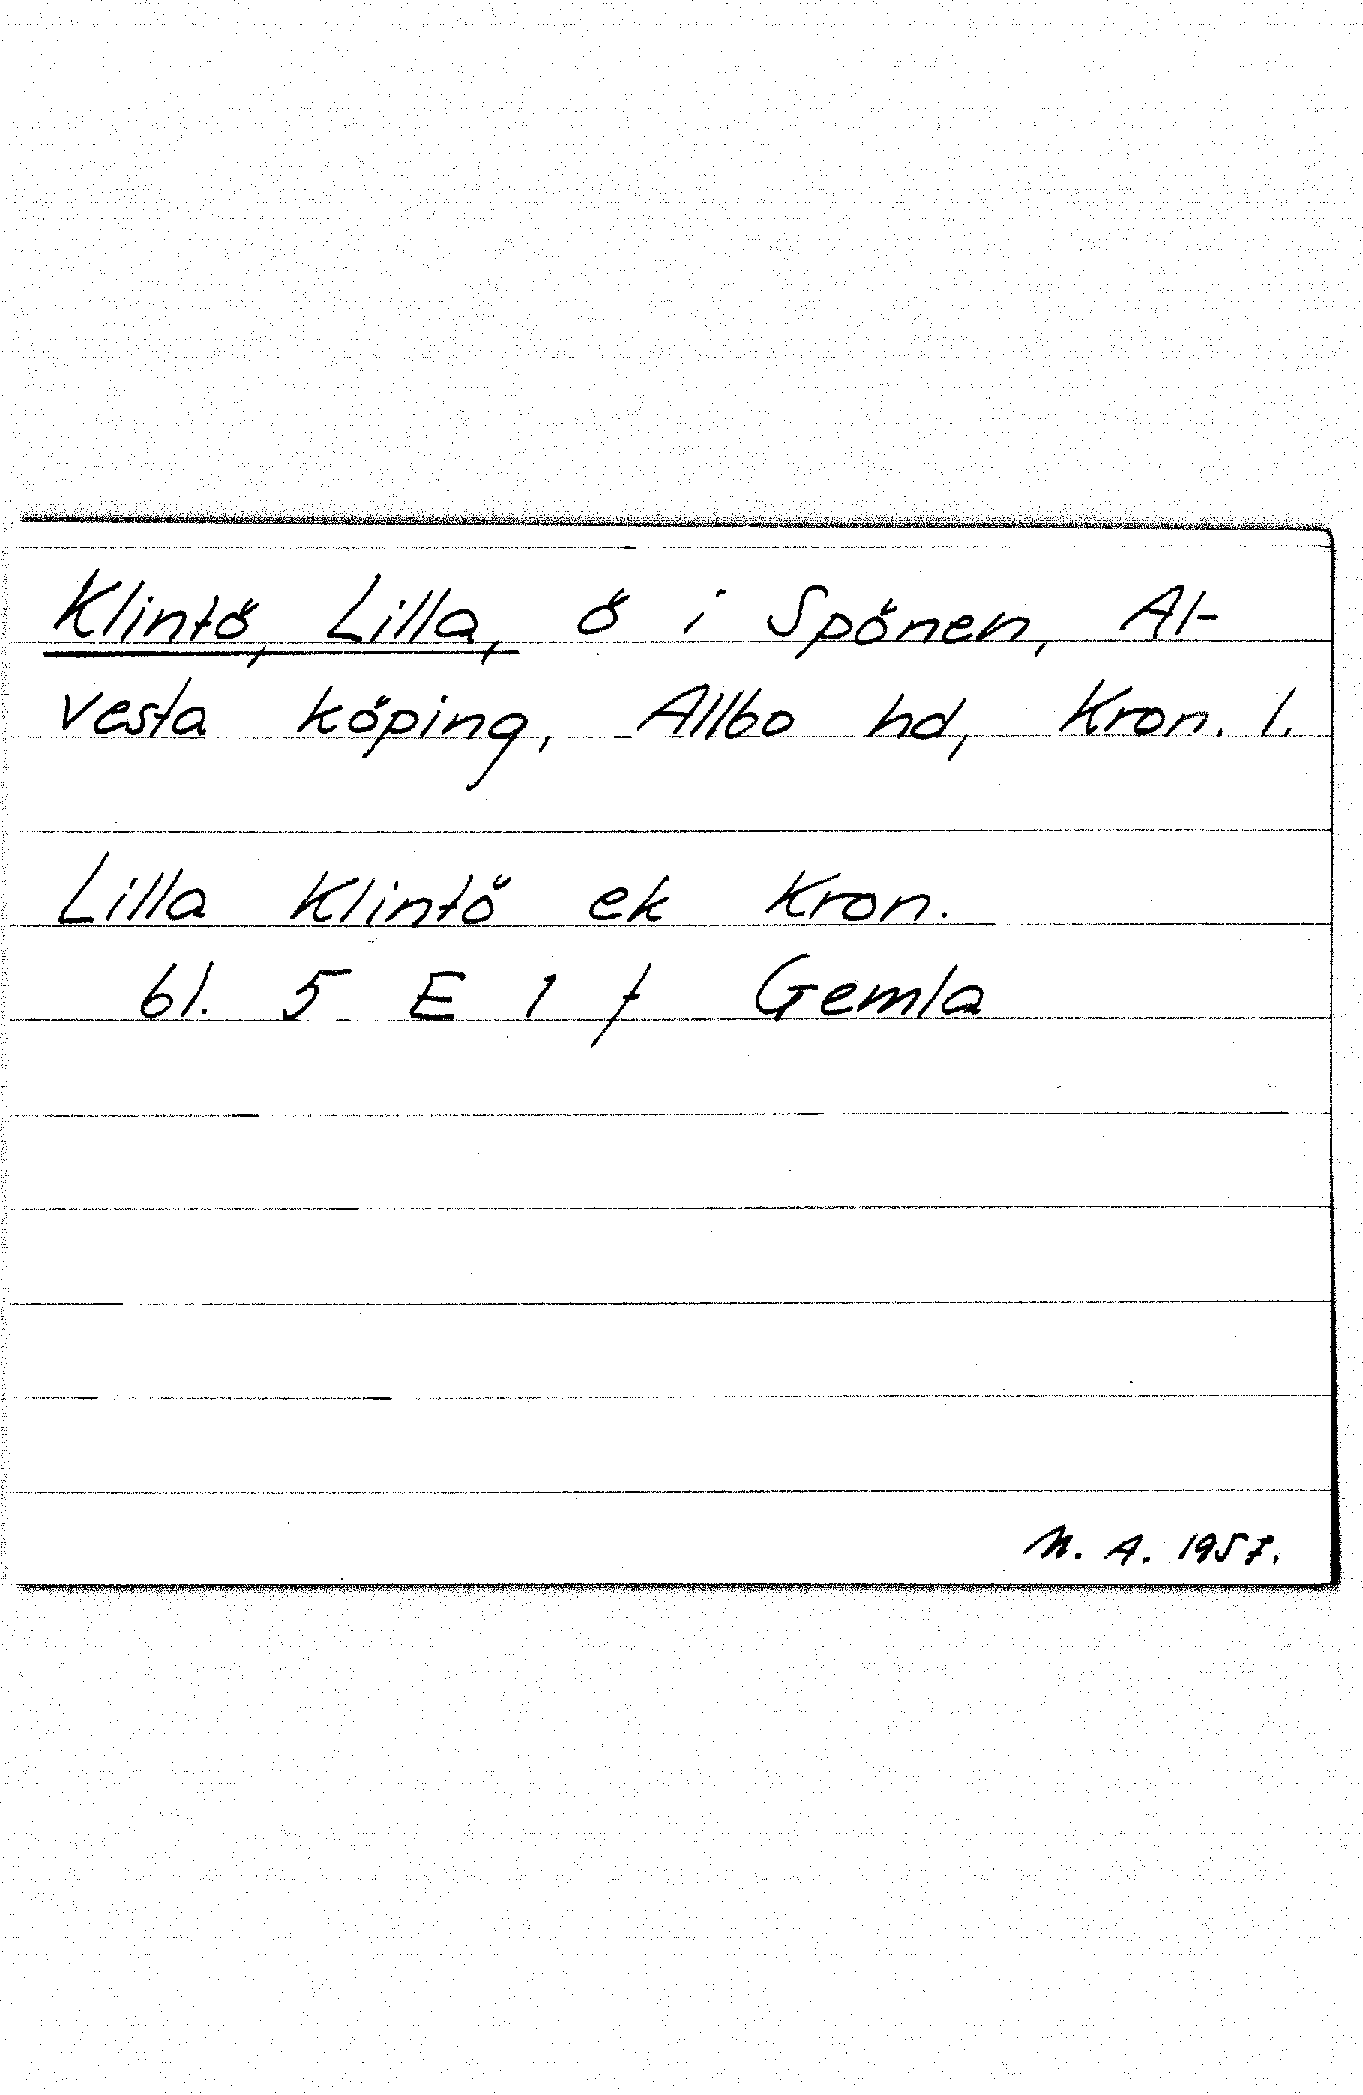 Klintö, Lilla, ö i Spånen, Al-
vesta köping, Allbo hd, Kron. l.
Lilla Klintö ek Kron.
bl. 5 E 1 f Gemla
N. A. 1957.